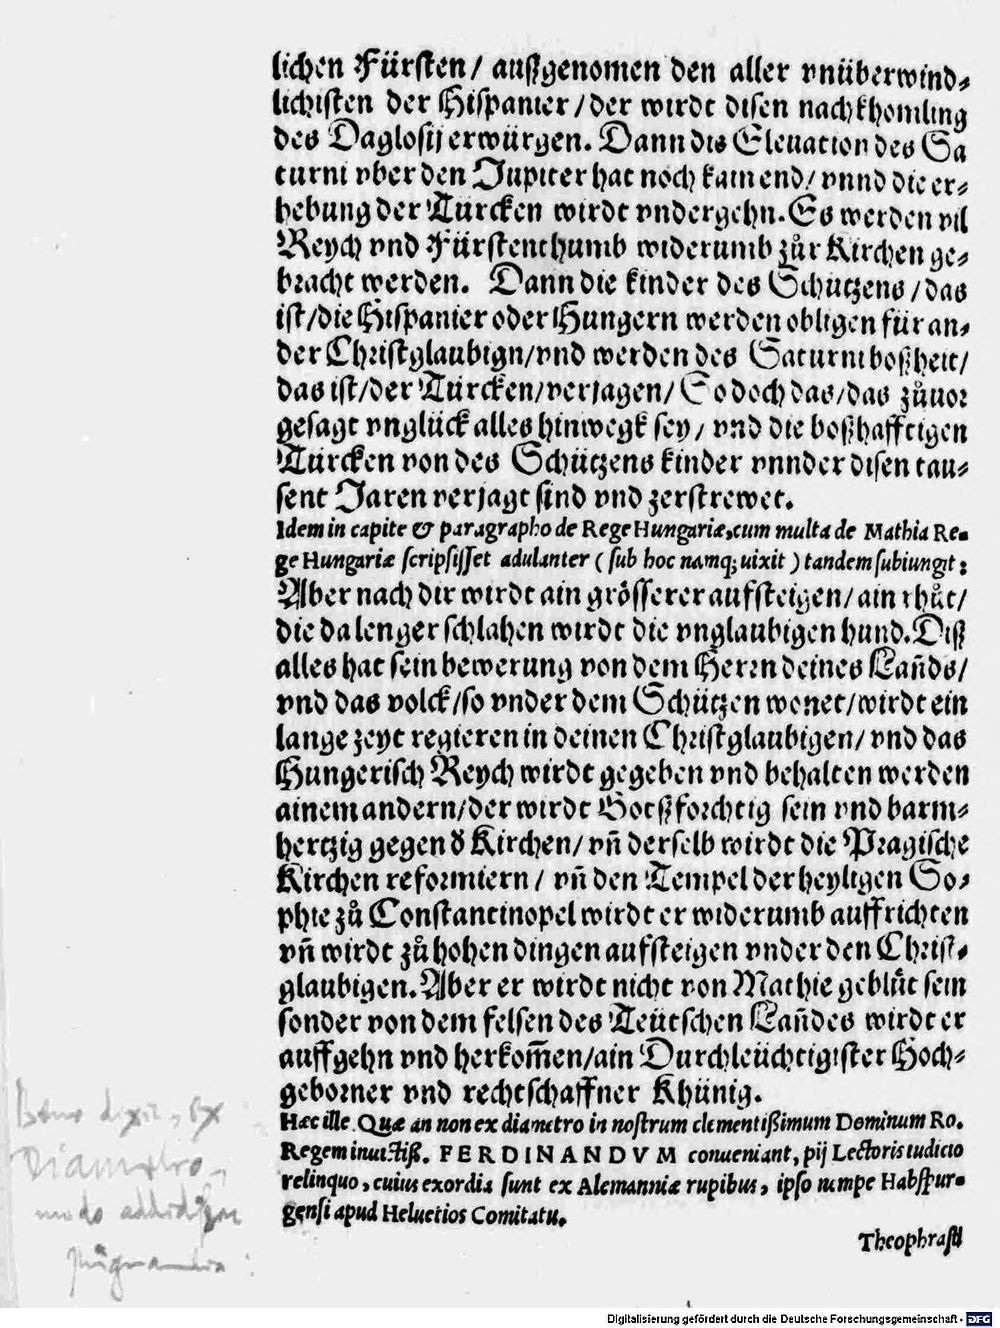 lichen Fürsten/ außgenomen den aller vnüberwind⸗
lichisten der Hispanier/der wirdt disen nachkhomling
des Daglosij erwürgen. Dann die Eleuation des Sa
turni vber den Jupiter hat noch kain end/ vnnd die er⸗
hebung der Türcken wirdt vndergehn. Es werden vil
Reych vnd Fürstenthumb widerumb zůr Kirchen ge⸗
bracht werden. Dann die kinder des Schützens/das
ist/die Hispanier oder Hungern werden obligen für an⸗
der Christglaubign/vnd werden des Saturni boßheit/
das ist/der Türcken/verjagen/ So doch das/das zůuor
gesagt vnglück alles hinwegk sey/ vnd die boßhafftigen
Türcken von des Schützens kinder vnnder disen tau⸗
sent Jaren verjagt sind vnd zerstrewet.
Idem in capite & paragrapho de Rege Hungariæ, cum multa de Mathia Re⸗
ge Hungariæ scripsisset adulanter (sub hoc namq; uixit) tandem subiungit:
Aber nach dir wirdt ain grösserer aufsteigen/ ain rhůt/
die da lenger schlahen wirdt die vnglaubigen hund. Diß
alles hat sein bewerung von dem Herrn deines Lañds/
vnd das volck/so vnder dem Schützen wonet/wirdt ein
lange zeyt regieren in deinen Christglaubigen/ vnd das
Hungerisch Reych wirdt gegeben vnd behalten werden
ainem andern/der wirdt Gotßforchtig sein vnd barm⸗
hertzig gegen d̕ Kirchen/ vñ derselb wirdt die Pragische
Kirchen reformiern/ vñ den Tempel der heyligen So⸗
phie zů Constantinopel wirdt er widerumb auffrichten
vñ wirdt zů hohen dingen aufsteigen vnder den Christ⸗
glaubigen. Aber er wirdt nicht von Mathie geblůt sein
sonder von dem felsen des Teütschen Lañdes wirdt er
auffgehn vnd herkom̃en/ain Durchleüchtigister Hoch⸗
geborner vnd rechtschaffner Khünig.
Hæc ille. Quæ an non ex diametro in nostrum clementißimum Dominum Ro.
Regem inuictiß. FERDINANDVM conueniant, pij Lectoris iudicio
relinquo, cuius exordia sunt ex Alemanniæ rupibus, ipso nimpe Habspur⸗
gensi apud Heluetios Comitatu.
Theophrasti
dixit, ex
Diametro,
modo
Digitalisierung gefördert durch die Deutsche Forschungsgemeinschaft - DFG